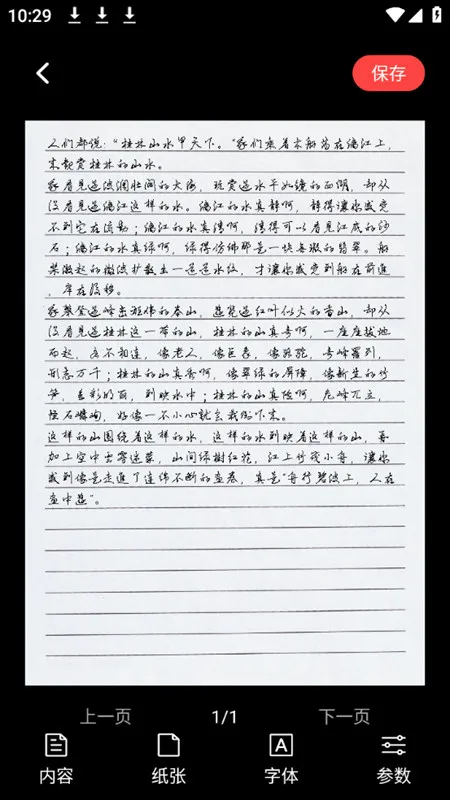 10:29
保存
人们都说：“桂林山水甲天下。”我们乘着木船荡在漓江上，
来观赏桂林的山水。
我看见过波澜壮阔的大海，玩赏过水平如镜的西湖，却从
没看见过漓江这样的水。漓江的水真静啊，静得让你感受
不到它在流动；漓江的水真清啊，清得可以看见江底的沙
石；漓江的水真绿啊，绿得仿佛那是一块无瑕的翡翠。船
桨激起的微波扩散出一道道水纹，才让你感受到船在前进
，岸在后移。
我攀登过峰峦雄伟的泰山，游览过红叶似火的香山，却从
没看见过桂林这一带的山，桂林的山真奇啊，一座座拔地
而起，各不相连，像老人，像巨象，像骆驼，奇峰罗列，
形态万千；桂林的山真秀啊，像翠绿的屏障，像新生的竹
笋，色彩明丽，倒映水中；桂林的山真险啊，危峰兀立，
怪石嶙峋，好像一不小心就会栽倒下来。
这样的山围绕着这样的水，这样的水倒映着这样的山，再
加上空中云雾迷蒙，山间绿树红花，江上竹筏小舟，让你
感到像是走进了连绵不断的画卷，真是“舟行碧波上，人在
画中游”。
上一页
1/1
下一页
内容
纸张
字体
参数